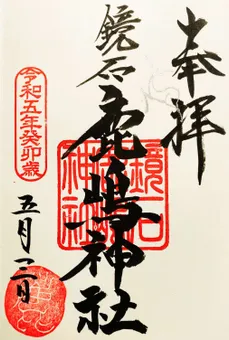 奉拝
鏡石
鹿嶋神社
鏡石
鹿嶋
神社
令和五年癸卯歳
五月三日